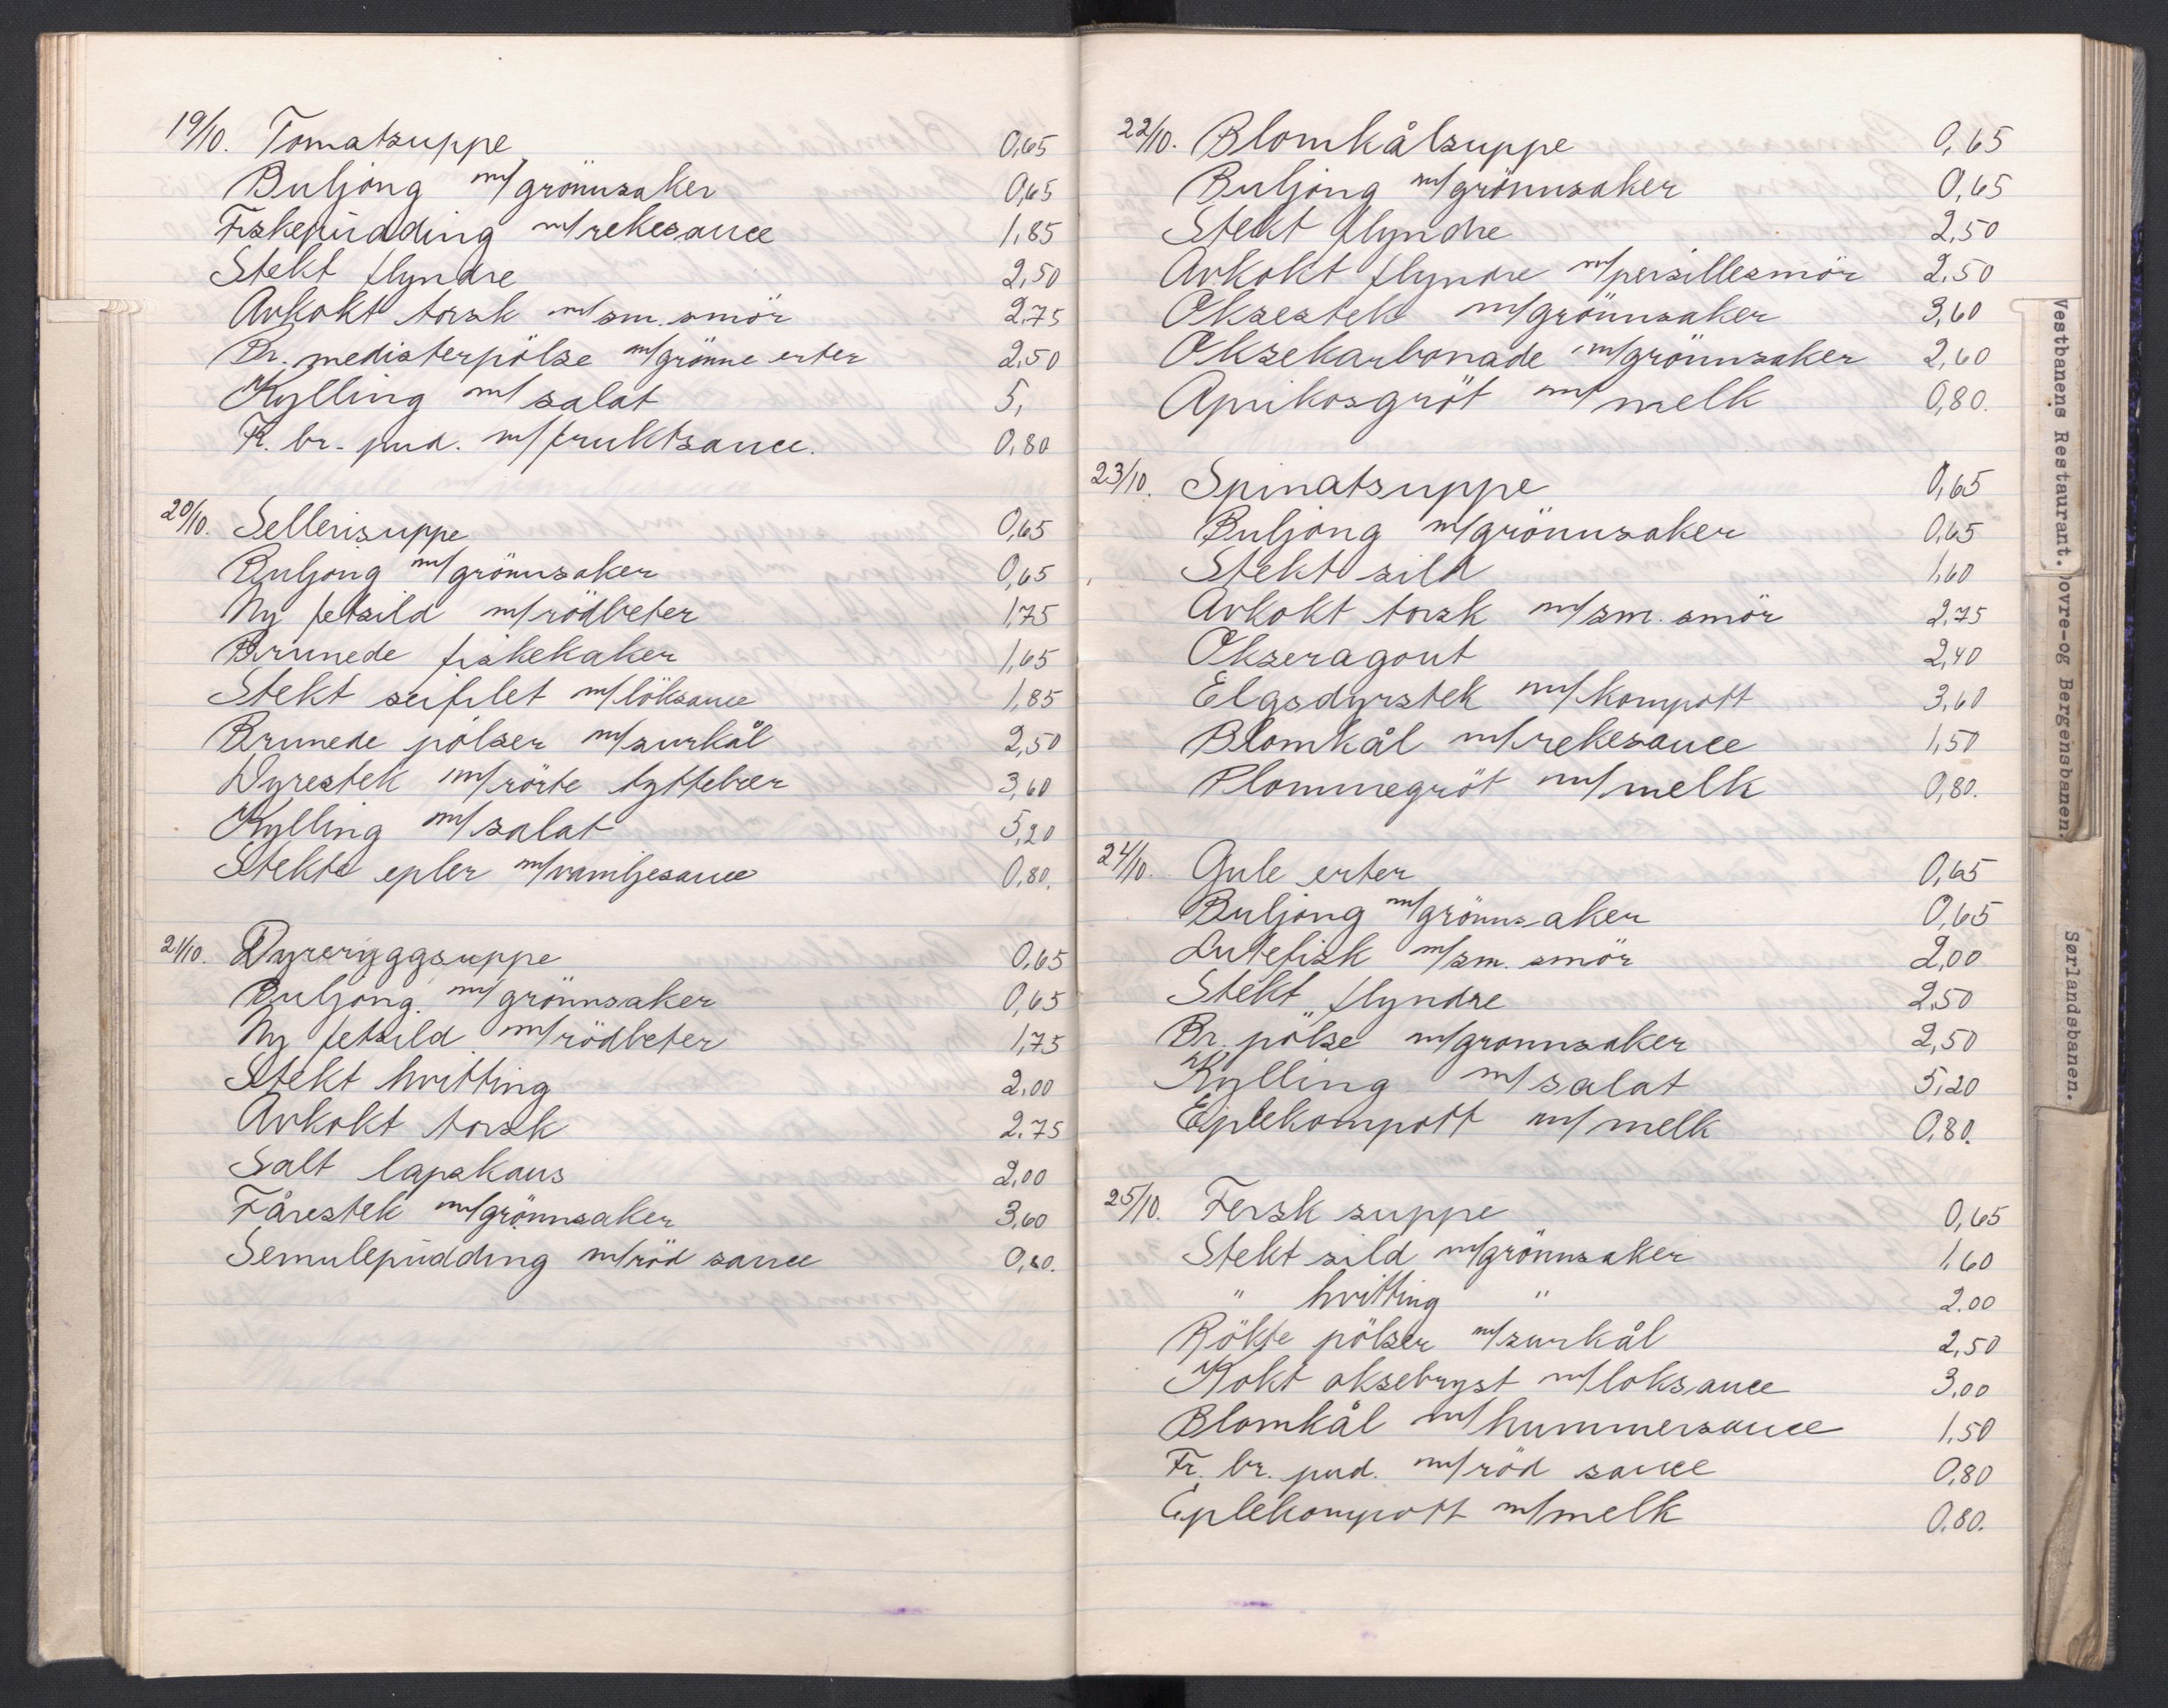 19/10. Tomatsuppe 0,65
Buljong m/grönnsaker 0,65
Fiskepudding m/rekesauce 1,85
Stekt flyndre 2,50
Avkokt torsk m/sm. smör 2,75
Br. medisterpölse m/grönne erter 2,50
Kylling m/salat 5,
Fr. br. pud. m/fruktsauce. 0,80
20/10. Sellerisuppe 0,65
Buljong m/grönnsaker 0,65
Ny fetsild m/rödbeter 1,75
Brunede fiskekaker 1,65
Stekt seifilet m/löksauce 1,85
Brunede pölser m/surkål 2,50
Dyrestek m/rörte tyttebær 3,60
Kylling m/salat 5,20
Stekte epler m/vaniljesauce 0,80.
21/10. Dyreryggsuppe 0,65
Buljong m/grönnsaker 0,65
Ny fetsild m/rödbeter 1,75
Stekt hvitting 2,00
Avkokt torsk 2.75
Salt lapskaus 2,00
Fårestek m/grönnsaker 3,60
Semulepudding m/röd sauce 0,80.
22/10. Blomkålsuppe 0,65
Buljong m/grönnsaker 0,65
Stekt flyndre 2,50
Avkokt flyndre m/persillesmör 2,50
Oksestek m/grönnsaker 3,60
Oksekarbonade m/grönnsaker 2,60
Aprikosgröt m/melk 0,80.
23/10. Spinatsuppe 0,65
Buljong m/grönnsaker 0,65
Stekt sild 1,60
Avkokt torsk m/sm. smör 2,75
Okseragout 2,40
Elgsdyrstek m/kompott 3,60
Blomkål m/rekesauce 1,50
Plommegröt m/melk 0,80.
24/10. Gule erter 0,65
Buljong m/grönnsaker 0,65
Lutefisk m/sm. smör 2,00
Stekt flyndre 2,50
Br. pölse m/grønnsaker 2,50
Kylling m/salat 5,20
Eplekompott m/melk 0,80.
25/10. Fersk suppe 0,65
Stekt sild m/grönnsaker 1,60
" hvitting " 2.00
Rökte pölser m/surkål 2,50
Kokt oksebryst m/loksauce 3,00
Blomkål m/hummersauce 1,50
Fr. br. pud. m/röd sauce 0,80
Eplekompott m/melk 0,80.
Vestbanens Restaurant.
ovre-og Bergensbanen.
Sørlandsbanen.